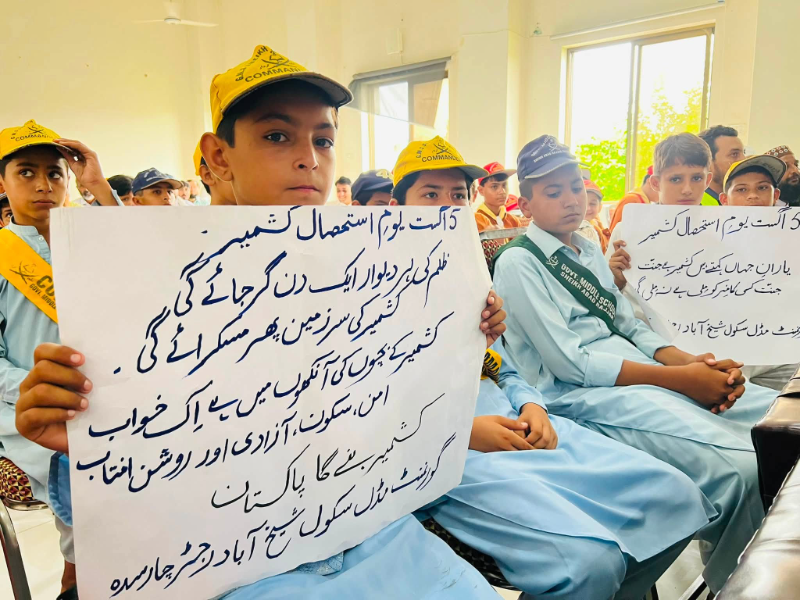 5 اگست یومِ استحصال کشمیر
ظلم کی ہر دیوار ایک دن گر جائے گی
کشمیر کی سرزمین پھر مسکرائے گی۔
کشمیر کے بچوں کی آنکھوں میں ہے اِک خواب
امن، سکون، آزادی اور روشن افتاب
کشمیر بنے گا پاکستان
گورنمنٹ مڈل سکول شیخ آباد رجڑ چارسدہ
5 اگست یومِ استحصال کشمیر
یارانِ جہاں کہتے ہیں کشمیر ہے جنت
جنت کسی کافر کو ملی ہے نہ ملے گی
گورنمنٹ مڈل سکول شیخ آباد
COMMAND
COMMAN
GOVT. MIDDLE SCHOOL
SHEIKH ABAD RAJJAR